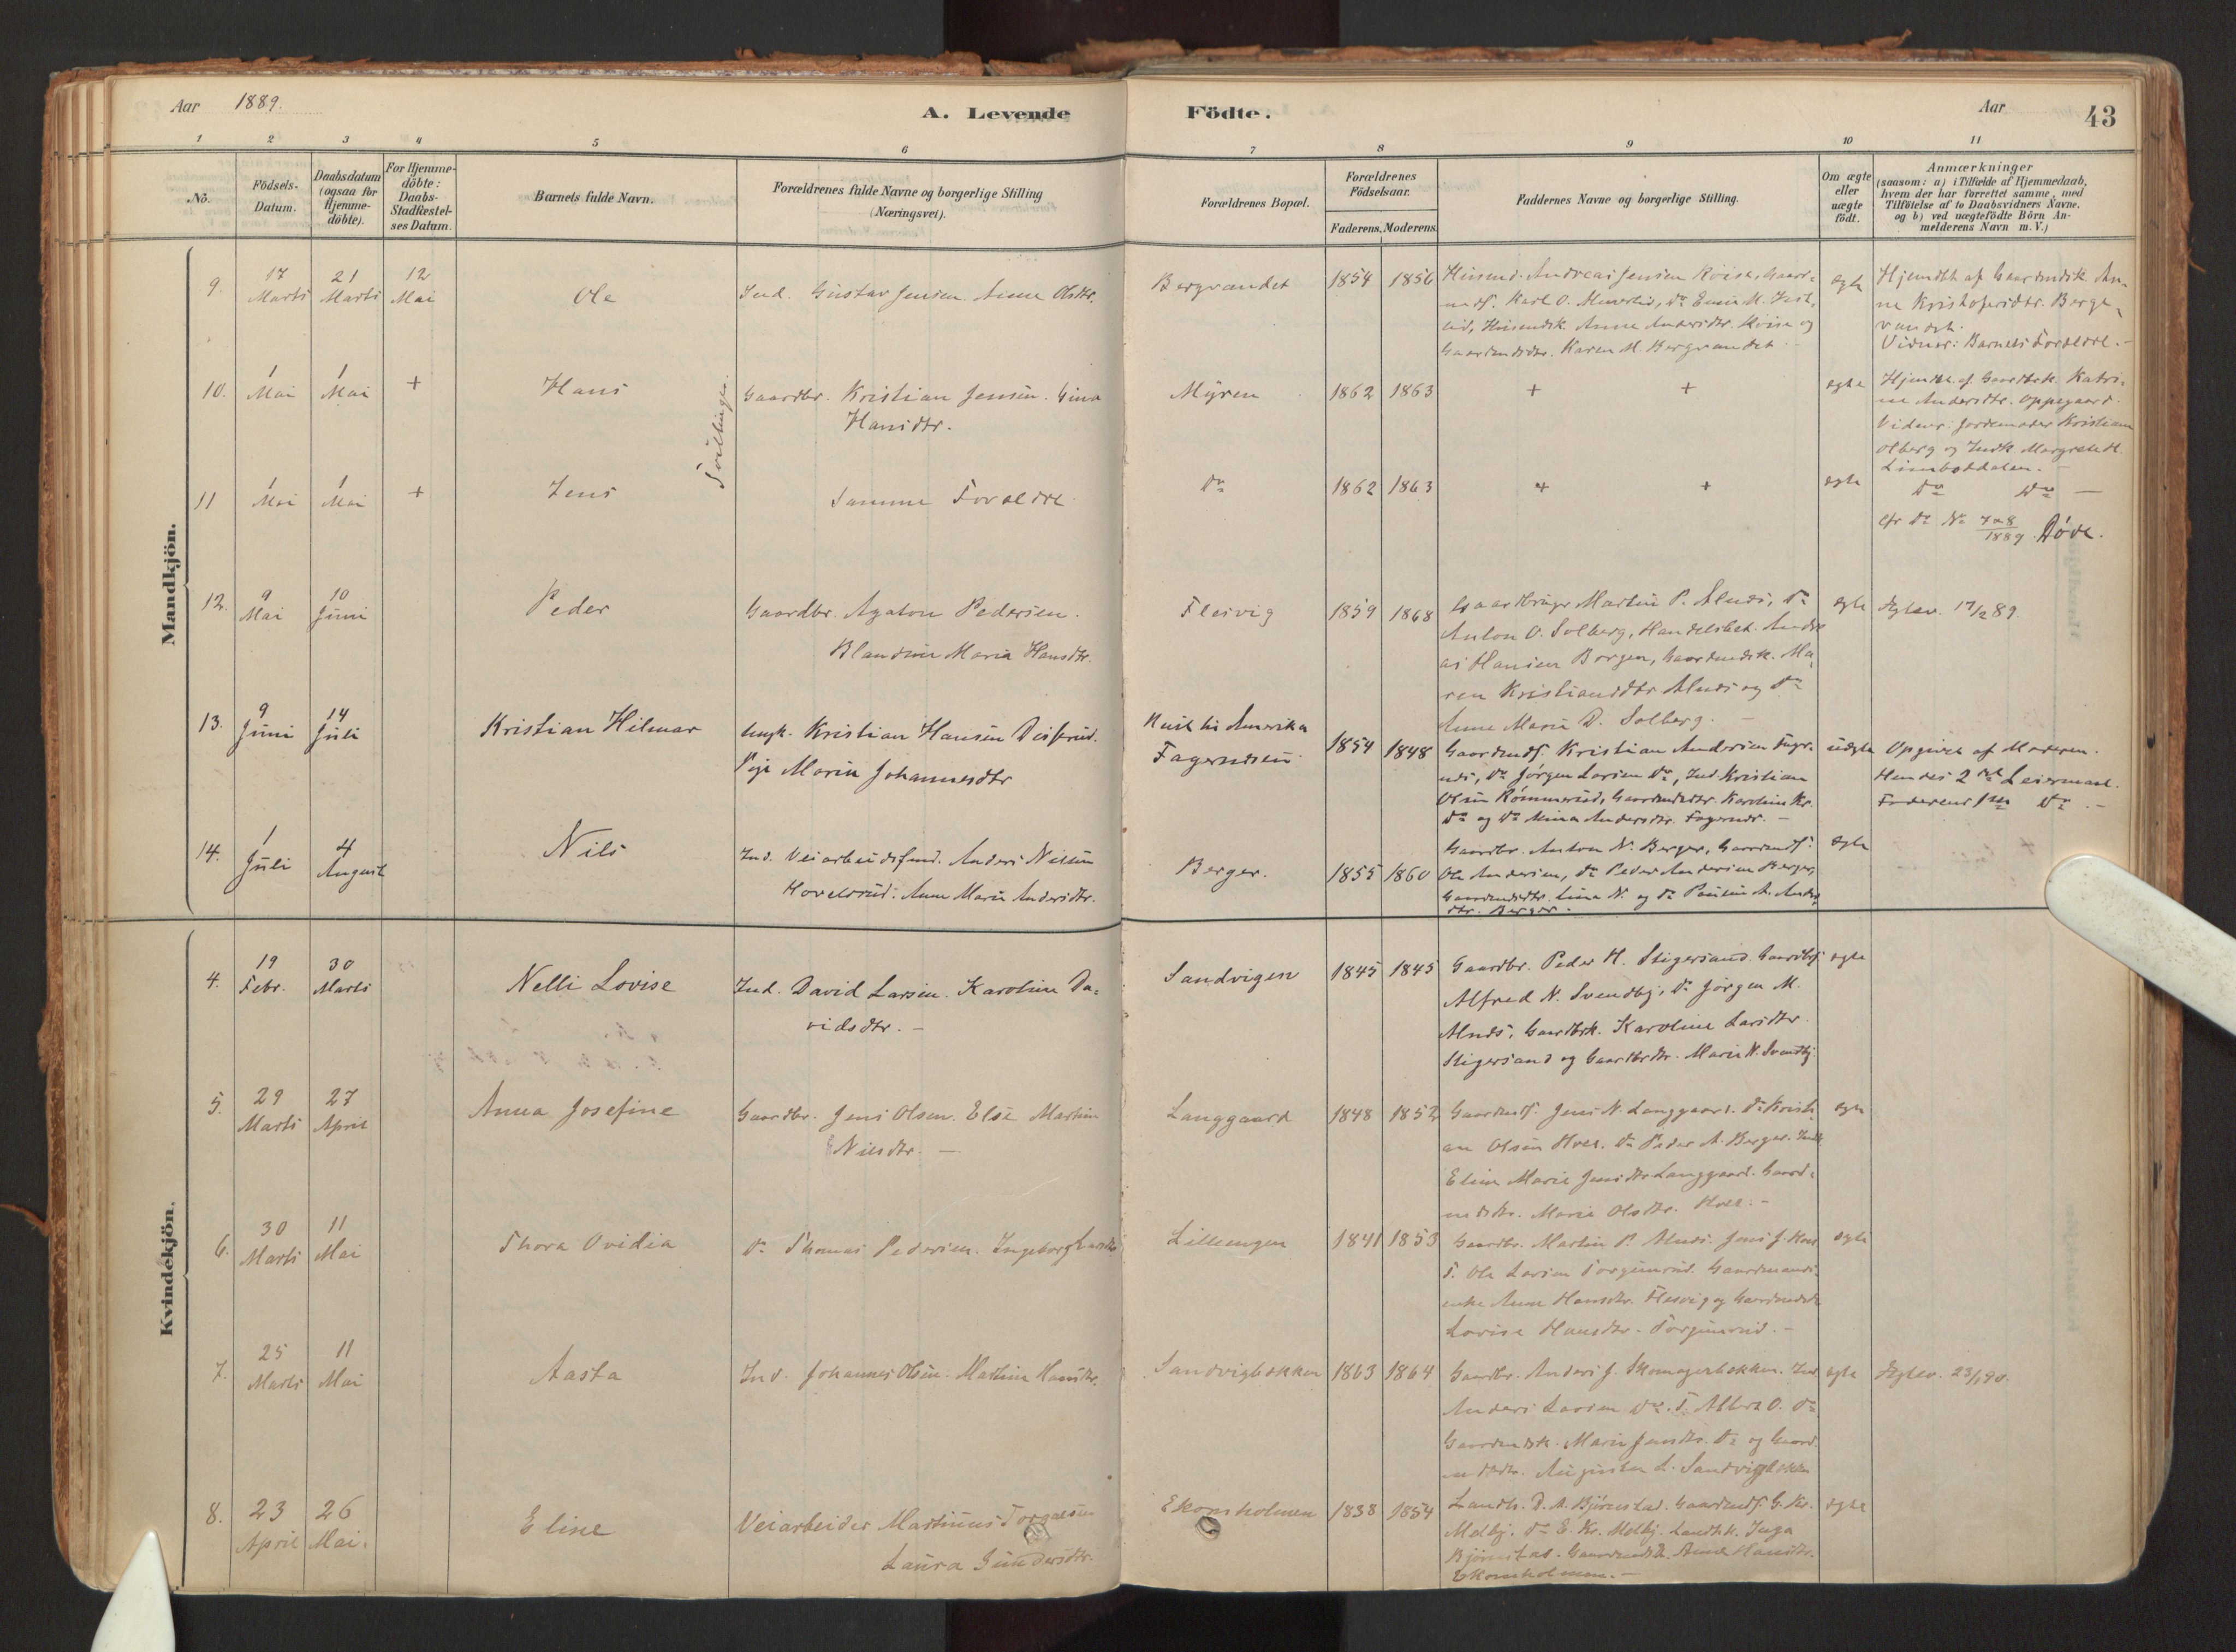 Aar 1889.
A. Levende
Födte.
Aar
43
1
2
3
4
5
6
7
8
9
10
11
No.
Födsels-
Datum.
Daabsdatum
(ogsaa for
Hjemme-
döbte).
For Hjemme-
döbte:
Daabs-
Stadfæstel-
ses Datum.
Barnets fulde Navn.
Forældrenes fulde Navne og borgerlige Stilling
(Næringsvei).
Forældrenes Bopæl.
Forældrenes
Födselsaar.
Faderens. Moderens.
Faddernes Navne og borgerlige Stilling.
Om ægte
eller
uægte
födt.
Anmærkninger
(saasom: a) i Tilfælde af Hjemmedaab,
hvem der har forrettet samme, med
Tilföielse af to Daabsvidners Navne.
og b) ved uægtefödte Börn An-
melderens Navn m. V.)
Mandkjön.
9.
17
Marts
21
Marts
12
Mai
Ole
Ind. Gustav Jensen. Anne Olsdtr.
Bergvandet
1854
1856
Husmd. Andreas Jensen Roise, Gaard-
Karl O.
Anne Andersdtr. Roise og
Karen M. Bergvandet
ægte
Hjemdbt af Gaardmdsk. An-
ne Kristofersdtr. Berge-
vandet.
Vidner: Barnets Forældre.
10.
1
Mai
1
Mai
+
Hans
Tvillinger.
Gaardbr. Kristian Jensen. Gina
Hansdtr.
Myren
1862
1863
+ +
ægte
Hjemdbt. af Gaardbrk. Katri-
ne Andersdtr. Oppegaard.
Vidner: Jordemoder Kristiane
Olberg og Indk. Margrete H.
11
1
Mai
1
Mai
+
Jens
Samme Forældre
Do
1862
1863
+ +
ægte
Do Do —
cfr Do No 7 & 8
1889 Døde.
12.
9
Mai
10
Juni
Peder
Gaardbr. Agaton Pedersen.
Blandine Maria Hansdtr.
Flesvig
1859
1868
Gaardbruger Martin P. Alnæs, Do
Anton O. Solberg, Handelsbet. Andre
as Hansen Borgen, Gaardmdsk. Ma-
ren Kristiansdtr Alnæs og Do
Anne Marie D. Solberg. —
ægte
17/2 89.
13.
9
Juni
14
Juli
Kristian Hilmar
Ungk. Kristian Hansen Disserud.
Pige Marin Johannesdtr
Reist til Amerika
Fagernæsen
1854
1848
Gaardmds. Kristian Andersen Fager-
næs, Do Jörgen Larsen Do, Ind. Kristian
Olsen Rømmerud, Gaardmdsdtr. Karoline Kr.
Do og Do Mina Andersdtr. Fagernæs. —
uægte
Opgivet af Moderen.
Hendes 2det Leiermaal.
Faderens 1ste Do. —
14.
1
Juli
4
August
Nils
Ind. Veiarbeidsfmd. Anders Nilsen
Hovelsrud. Anne Marie Andersdtr.
Berger.
1855
1860
Gaardbr. Anton N. Berger, Gaardmds.
Ole Andersen, Do Peder Andersen Berger,
Gaardmdsdtr. Lina N. og Do Pauline A. Anders
dtr. Berger.
ægte
Kvindekjön.
4.
19
Febr.
30
Marts
Nelli Lovise
Ind. David Larsen. Karoline Da-
vidsdtr. —
Sandvigen
1845
1845
Gaardbr. Peder H. Stigersand. Gaardbrs.
Alfred N. Svendby, Do Jörgen M.
Alnæs, Gaardbrk. Karoline Larsdtr.
Stigersand og Gaardbrdtr. Marie N. Svendby
ægte
5.
29
Marts
27
April
Anna Josefine
Gaardbr. Jens Olsen. Else Martine
Nilsdtr. —
Langgaard
1848
1852
Gaardmds. Jens N. Langgaard. Do Kristi-
an Olsen Hoel. Do Peder A. Berger.
Eline Marie Jensdtr Langgaard. Gaard-
mdsdtr. Marie Olsdtr. Hoel. —
ægte
6.
30
Marts
11
Mai
Thora Ovidia
Do Thomas Pedersen. Ingeborg Larsdtr
Lillengen
1841
1853
Gaardbr. Martin P. Alnæs. Jens J. Hoel
Ole Larsen Torgunrud. Gaardmands-
enke Anne Hansdtr. Flesvig og Gaardmdsdtr
Lovise Hansdtr. Torgunrud. —
ægte
7.
25
Marts
11
Mai
Aasta
Ind. Johannes Olsen. Martine Hansdtr.
Sandvigbakken
1863
1864
Gaardbr. Anders J. Skomagerbakken. Ind
Anders Larsen Do. Albert O. Do
Gaardmdsk. Marie Jensdtr. Do og Gaard
mdsdtr. Augusta L. Sandvigbakken
ægte
23/1 90.
8.
23
April
26
Mai.
Eline
Veiarbeider Martinus Torgalsen
Laura Gundersdtr.
Ekornholmen
1838
1854
Landh. D. A. Bjørnstad. Gaardmds. G. Kr.
Melby. Do E. Kr. Melby. Landhk. Inga
Bjørnstad. Gaardmdsk. Anne Hansdtr.
Ekornholmen. —
ægte